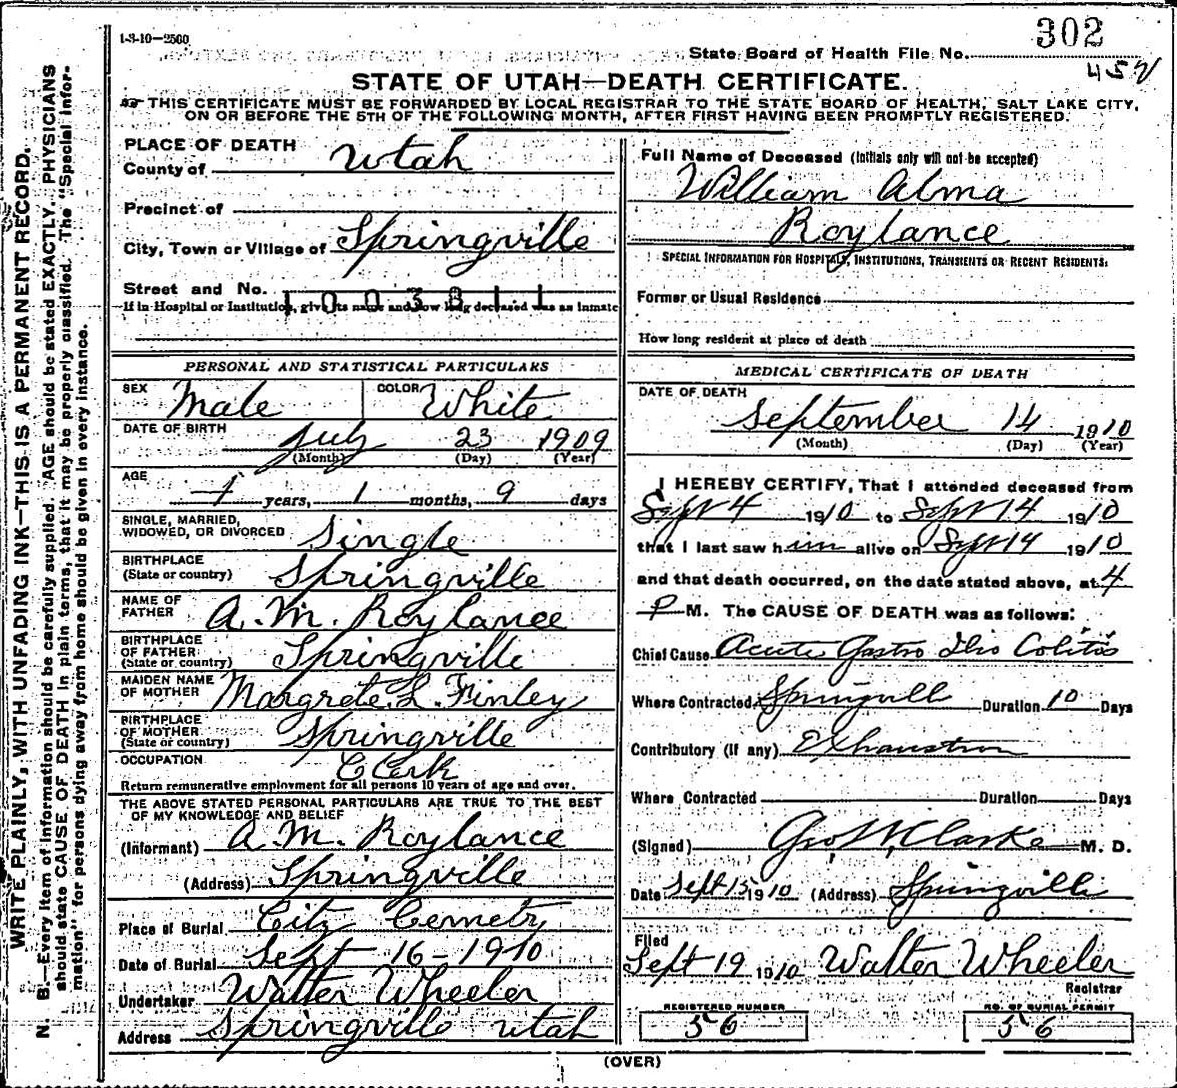 1-3-10—2500
State Board of Health File No. 302
452
STATE OF UTAH—DEATH CERTIFICATE.
THIS CERTIFICATE MUST BE FORWARDED BY LOCAL REGISTRAR TO THE STATE BOARD OF HEALTH, SALT LAKE CITY,
ON OR BEFORE THE 5TH OF THE FOLLOWING MONTH, AFTER FIRST HAVING BEEN PROMPTLY REGISTERED.
WRITE PLAINLY, WITH UNFADING INK—THIS IS A PERMANENT RECORD.
N. B.—Every item of information should be carefully supplied. AGE should be stated EXACTLY. PHYSICIANS
should state CAUSE OF DEATH in plain terms, that it may be properly classified. The "Special Infor-
mation" for persons dying away from home should be given in every instance.
PLACE OF DEATH
County of Utah
Precinct of
City, Town or Village of Springville
Street and No.
1003811
If in Hospital or Institution, give its name and how long deceased was an Inmate
PERSONAL AND STATISTICAL PARTICULARS
SEX Male COLOR White
DATE OF BIRTH July 23 1909
(Month) (Day) (Year)
AGE
1 years, 1 months, 9 days
SINGLE, MARRIED,
WIDOWED, OR DIVORCED Single
BIRTHPLACE
(State or country) Springville
NAME OF
FATHER A. M. Roylance
BIRTHPLACE
OF FATHER
(State or country) Springville
MAIDEN NAME
OF MOTHER Margrete L. Finley
BIRTHPLACE
OF MOTHER
(State or country) Springville
OCCUPATION Clerk
Return remunerative employment for all persons 10 years of age and over.
THE ABOVE STATED PERSONAL PARTICULARS ARE TRUE TO THE BEST
OF MY KNOWLEDGE AND BELIEF
(Informant) A. M. Roylance
(Address) Springville
Place of Burial City Cemetry
Date of Burial Sept 16-1910
Undertaker Walter Wheeler
Address Springville Utah
Full Name of Deceased (Initials only will not be accepted)
William Alma
Roylance
SPECIAL INFORMATION FOR HOSPITALS, INSTITUTIONS, TRANSIENTS OR RECENT RESIDENTS:
Former or Usual Residence
How long resident at place of death
MEDICAL CERTIFICATE OF DEATH
DATE OF DEATH
September 14 1910
(Month) (Day) (Year)
I HEREBY CERTIFY, That I attended deceased from
Sept 4 1910 to Sept 14 1910
that I last saw him alive on Sept 14 1910
and that death occurred, on the date stated above, at 4
P M. The CAUSE OF DEATH was as follows:
Chief Cause Acute Gastro Ilio Colitis
Where Contracted Springvill Duration 10 Days
Contributory (if any) Exhaustion
Where Contracted Duration Days
(Signed) Geo W. Clarke M. D.
Date Sept 15 1910 (Address) Springville
Filed
Sept 19 1910 Walter Wheeler
Registrar
REGISTERED NUMBER
56
NO. OF BURIAL PERMIT
56
(OVER)